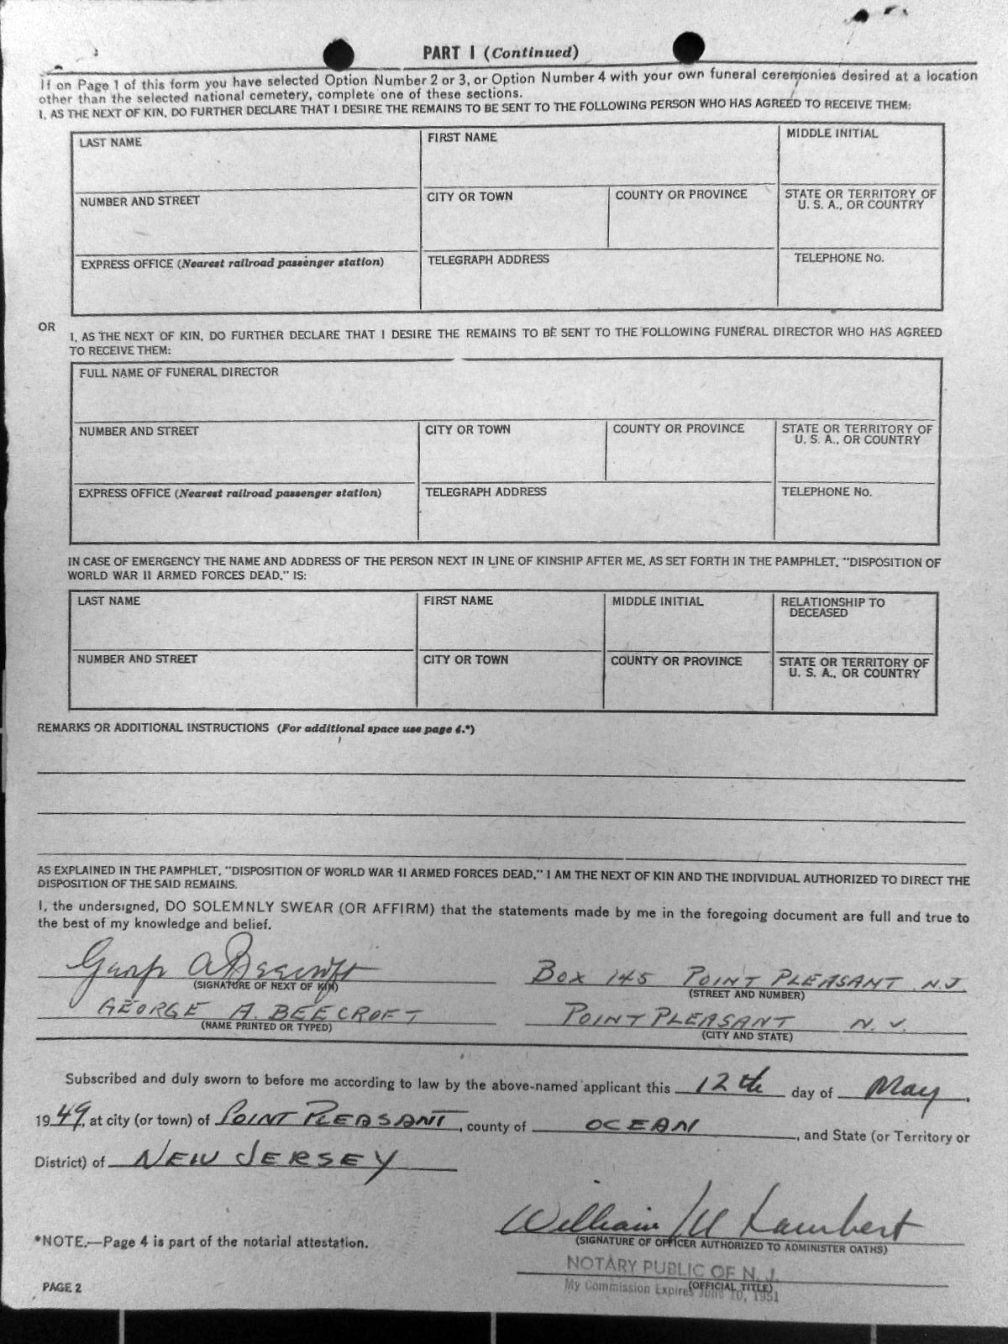 PART I (Continued)
If on Page 1 of this form you have selected Option Number 2 or 3, or Option Number 4 with your own funeral ceremonies desired at a location
other than the selected national cemetery, complete one of these sections.
I, AS THE NEXT OF KIN, DO FURTHER DECLARE THAT I DESIRE THE REMAINS TO BE SENT TO THE FOLLOWING PERSON WHO HAS AGREED TO RECEIVE THEM:
LAST NAME FIRST NAME MIDDLE INITIAL
NUMBER AND STREET CITY OR TOWN COUNTY OR PROVINCE STATE OR TERRITORY OF
U. S. A., OR COUNTRY
EXPRESS OFFICE (Nearest railroad passenger station) TELEGRAPH ADDRESS TELEPHONE No.
OR
I, AS THE NEXT OF KIN, DO FURTHER DECLARE THAT I DESIRE THE REMAINS TO BE SENT TO THE FOLLOWING FUNERAL DIRECTOR WHO HAS AGREED
TO RECEIVE THEM:
FULL NAME OF FUNERAL DIRECTOR
NUMBER AND STREET CITY OR TOWN COUNTY OR PROVINCE STATE OR TERRITORY OF
U. S. A., OR COUNTRY
EXPRESS OFFICE (Nearest railroad passenger station) TELEGRAPH ADDRESS TELEPHONE No.
IN CASE OF EMERGENCY THE NAME AND ADDRESS OF THE PERSON NEXT IN LINE OF KINSHIP AFTER ME, AS SET FORTH IN THE PAMPHLET, "DISPOSITION OF
WORLD WAR II ARMED FORCES DEAD," IS:
LAST NAME FIRST NAME MIDDLE INITIAL RELATIONSHIP TO
DECEASED
NUMBER AND STREET CITY OR TOWN COUNTY OR PROVINCE STATE OR TERRITORY OF
U. S. A., OR COUNTRY
REMARKS OR ADDITIONAL INSTRUCTIONS (For additional space use page 4.*)
AS EXPLAINED IN THE PAMPHLET, "DISPOSITION OF WORLD WAR II ARMED FORCES DEAD," I AM THE NEXT OF KIN AND THE INDIVIDUAL AUTHORIZED TO DIRECT THE
DISPOSITION OF THE SAID REMAINS.
I, the undersigned, DO SOLEMNLY SWEAR (OR AFFIRM) that the statements made by me in the foregoing document are full and true to
the best of my knowledge and belief.
George A Beecroft Box 145 POINT PLEASANT N.J
(SIGNATURE OF NEXT OF KIN) (STREET AND NUMBER)
GEORGE A. BEECROFT POINT PLEASANT N. J.
(NAME PRINTED OR TYPED) (CITY AND STATE)
Subscribed and duly sworn to before me according to law by the above-named applicant this 12th day of May,
1949, at city (or town) of POINT PLEASANT, county of OCEAN, and State (or Territory or
District) of NEW JERSEY
William M Lambert
*NOTE.—Page 4 is part of the notarial attestation. (SIGNATURE OF OFFICER AUTHORIZED TO ADMINISTER OATHS)
NOTARY PUBLIC OF N. J.
My Commission Expires June 10, 1951
(OFFICIAL TITLE)
PAGE 2